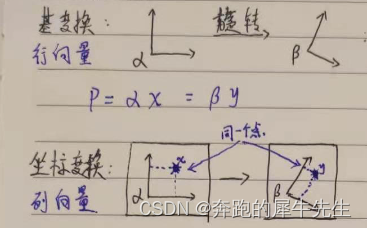 基变换: 旋转
行向量 α β
P = α x = β y
同一个点.
坐标变换: x y
列向量 α β
CSDN @奔跑的犀牛先生